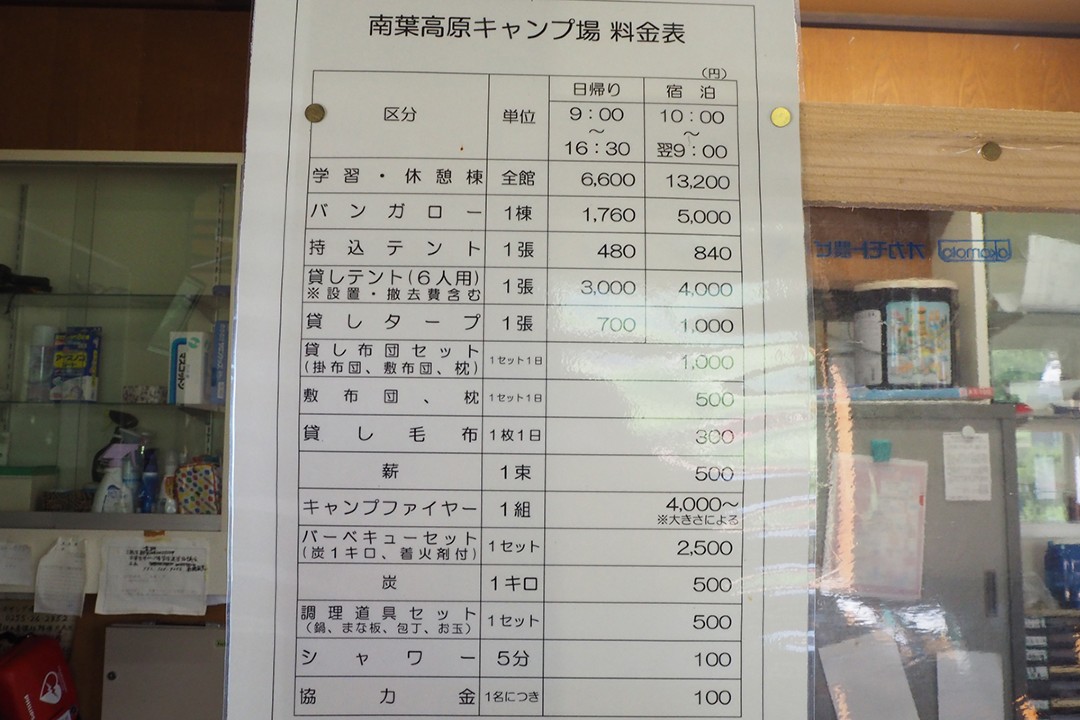 南葉高原キャンプ場 料金表
(円)
区分 単位 日帰り 9:00 ~ 16:30 宿泊 10:00 ~ 翌9:00
学習・休憩棟 全館 6,600 13,200
バンガロー 1棟 1,760 5,000
持込テント 1張 480 840
貸しテント(6人用) 1張 3,000 4,000
※設置・撤去費含む
貸しタープ 1張 700 1,000
貸し布団セット 1セット1日 1,000
(掛布団、敷布団、枕)
敷布団、枕 1セット1日 500
貸し毛布 1枚1日 300
薪 1束 500
キャンプファイヤー 1組 4,000~
※大きさによる
バーベキューセット 1セット 2,500
(炭1キロ、着火剤付)
炭 1キロ 500
調理道具セット 1セット 500
(鍋、まな板、包丁、お玉)
シャワー 5分 100
協力金 1名につき 100
okamoto
マスコットン